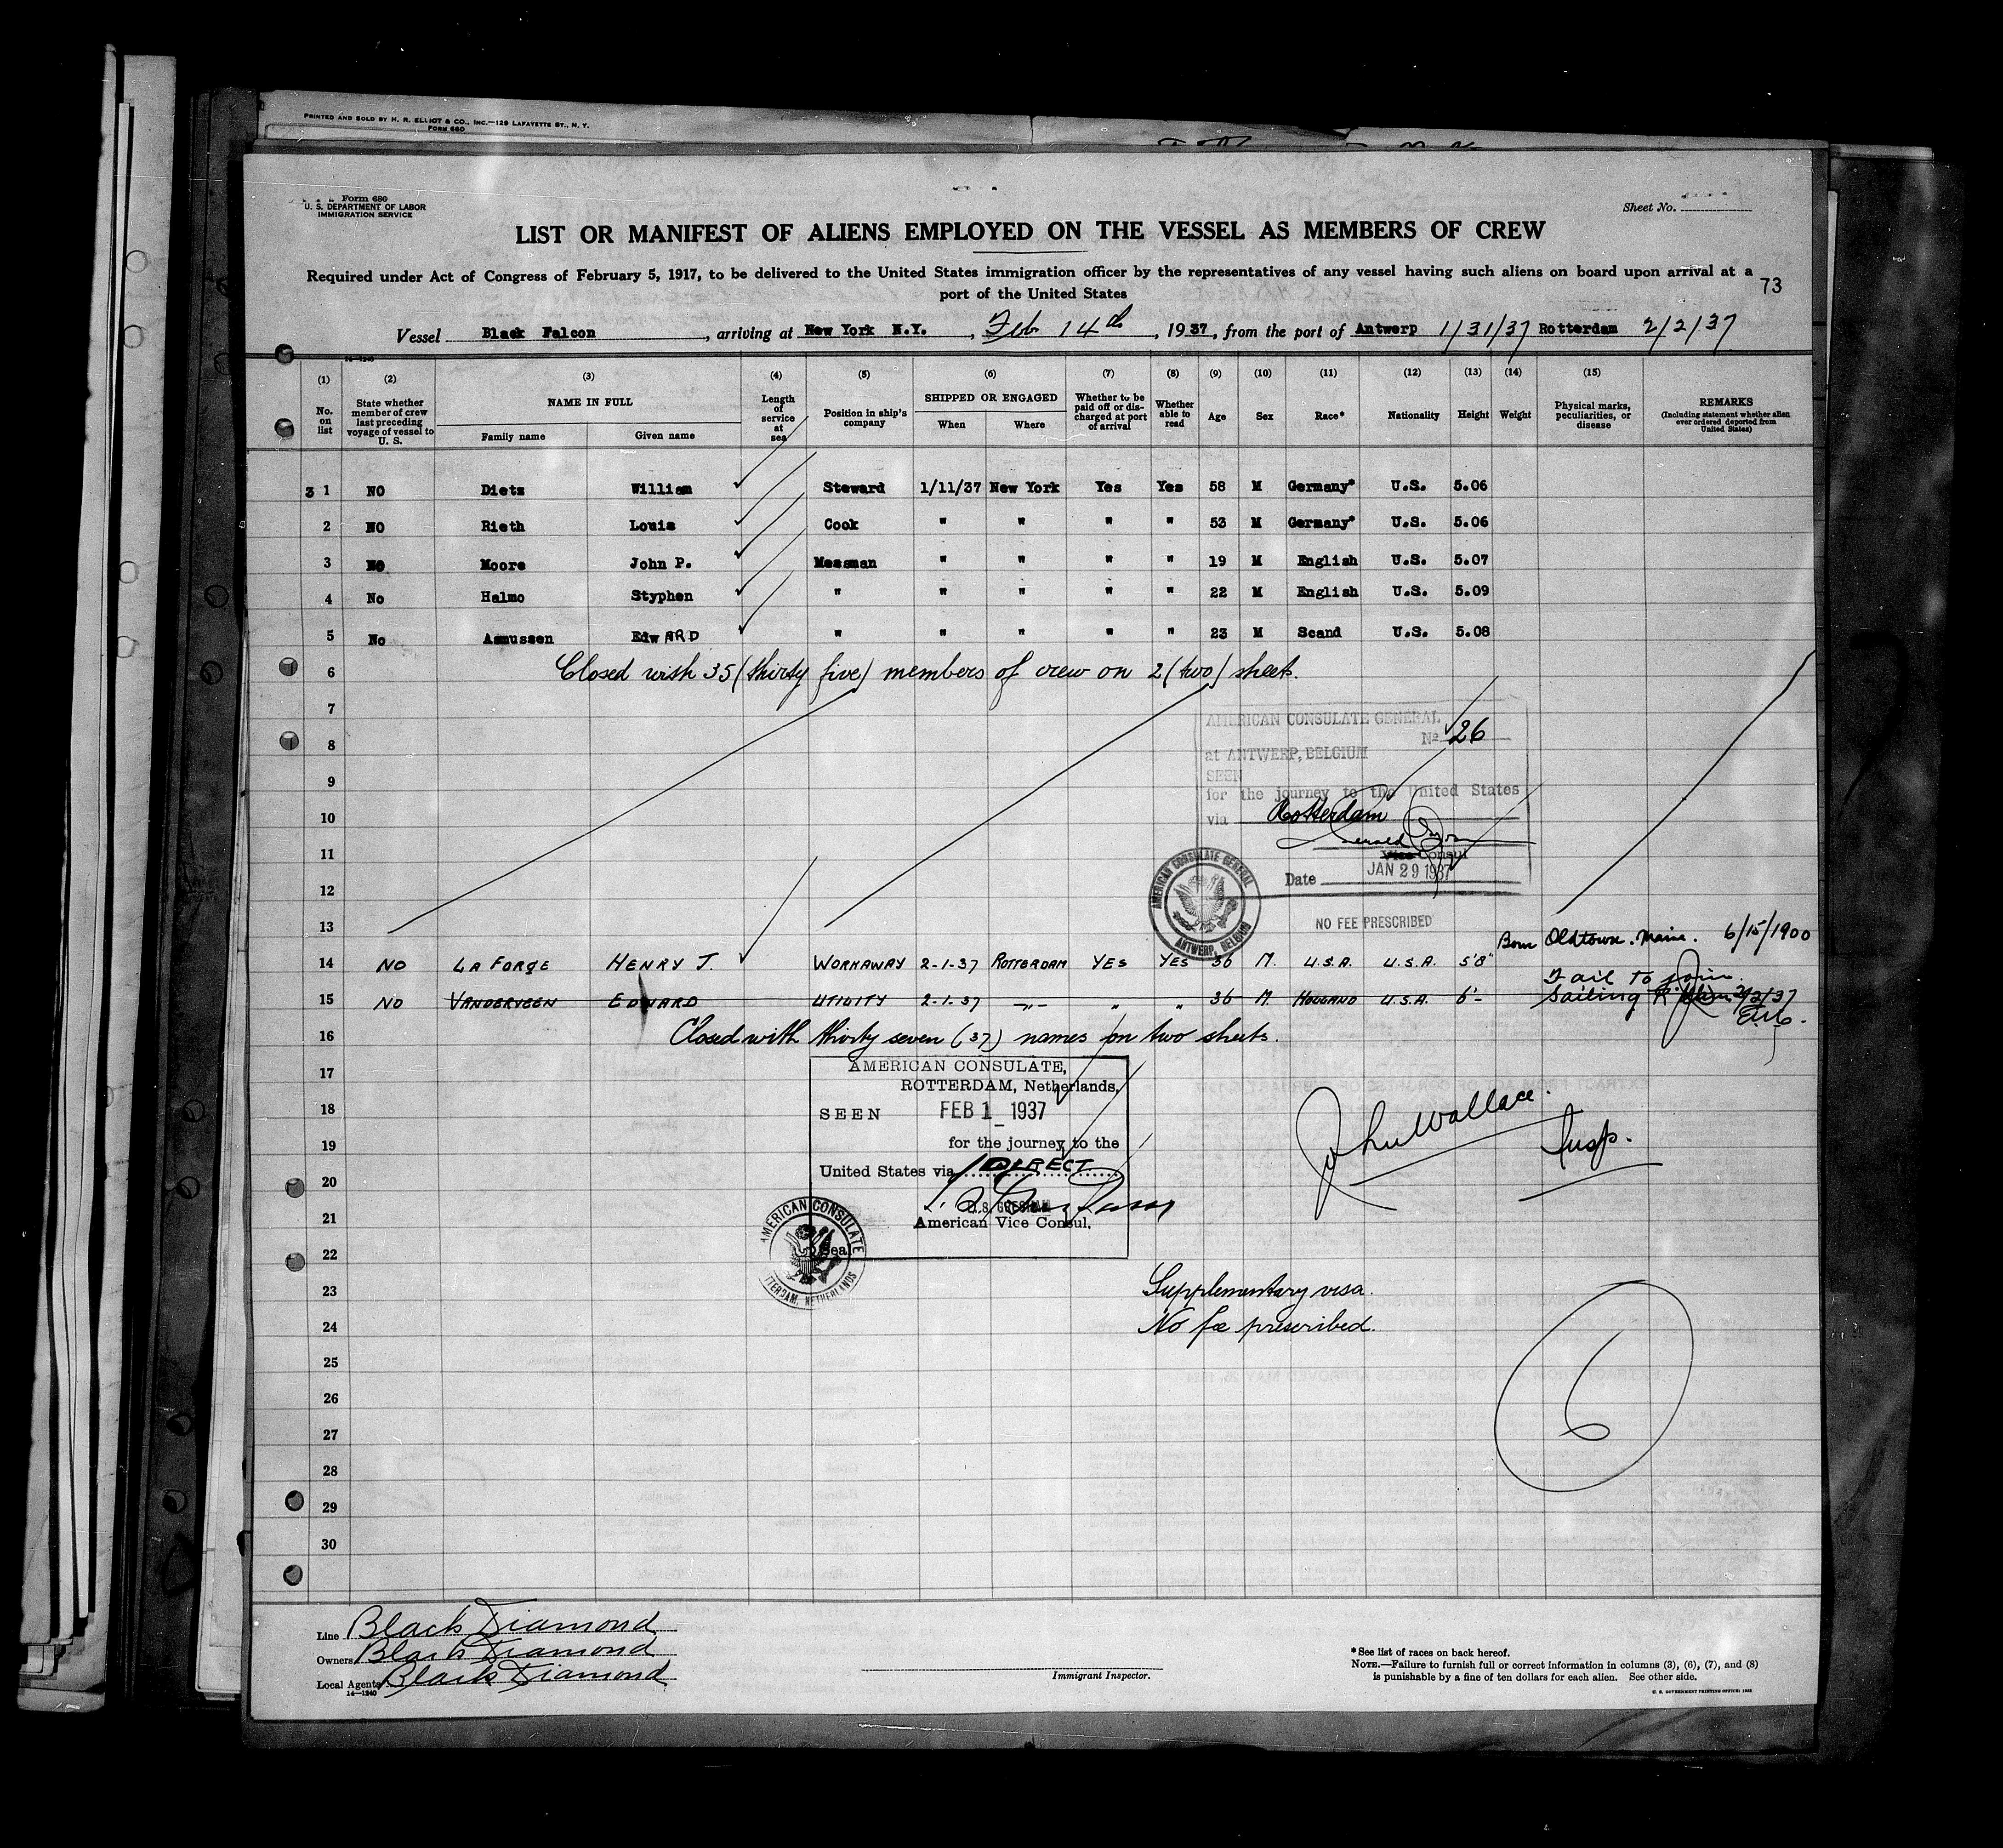 PRINTED AND SOLD BY H. R. ELLIOT & CO., INC.—129 LAFAYETTE ST., N. Y.
FORM 680
Form 680
U. S. DEPARTMENT OF LABOR
IMMIGRATION SERVICE
Sheet No.
LIST OR MANIFEST OF ALIENS EMPLOYED ON THE VESSEL AS MEMBERS OF CREW
Required under Act of Congress of February 5, 1917, to be delivered to the United States immigration officer by the representatives of any vessel having such aliens on board upon arrival at a
port of the United States
73
Vessel Black Falcon, arriving at New York N.Y., Feb 14th, 1937, from the port of Antwerp 1/31/37 Rotterdam 2/2/37
14-1240
(1) (2) (3) (4) (5) (6) (7) (8) (9) (10) (11) (12) (13) (14) (15)
No. on list State whether member of crew last preceding voyage of vessel to U. S. NAME IN FULL Family name Given name Length of service at sea Position in ship's company SHIPPED OR ENGAGED When Where Whether to be paid off or discharged at port of arrival Whether able to read Age Sex Race* Nationality Height Weight Physical marks, peculiarities, or disease REMARKS (Including statement whether alien ever ordered deported from United States)
3 1 NO Dietz William Steward 1/11/37 New York Yes Yes 58 M Germany* U.S. 5.06
2 NO Rieth Louis Cook " " " " 53 M Germany* U.S. 5.06
3 NO Moore John P. Messman " " " " 19 M English U.S. 5.07
4 No Halmo Styphen " " " " " 22 M English U.S. 5.09
5 No Asmussen EdwARD " " " " " 23 M Scand U.S. 5.08
6 Closed with 35 (thirty five) members of crew on 2 (two) sheet.
7
AMERICAN CONSULATE GENERAL
8 No. 26
at ANTWERP, BELGIUM
SEEN
9
for the journey to the United States
10 via Rotterdam
11 Vice Consul
Date JAN 29 1937
12
AMERICAN CONSULATE GENERAL ANTWERP, BELGIUM
13 NO FEE PRESCRIBED
Born Oldtown. Maine. 6/15/1900
14 NO LA FORGE HENRY J. WORKAWAY 2-1-37 ROTTERDAM YES YES 36 M. U.S.A. U.S.A. 5'8"
Fail to join
15 NO VANDERVEEN EDWARD UTILITY 2-1-37 -„- " " 36 M. HOLLAND U.S.A. 6'- Sailing 2/2/37
16 Closed with thirty seven (37) names on two sheets.
17 AMERICAN CONSULATE,
ROTTERDAM, Netherlands,
18 SEEN FEB 1 1937
19 for the journey to the
United States via DIRECT
20
21 American Vice Consul.
22 Seal
AMERICAN CONSULATE ROTTERDAM, NETHERLANDS
John Wallace.
Insp.
23 Supplementary visa.
24 No fee prescribed.
25
26
27
28
29
30
6
Line Black Diamond
Owners Black Diamond
Local Agents Black Diamond
14-1240
Immigrant Inspector.
*See list of races on back hereof.
NOTE.—Failure to furnish full or correct information in columns (3), (6), (7), and (8)
is punishable by a fine of ten dollars for each alien. See other side.